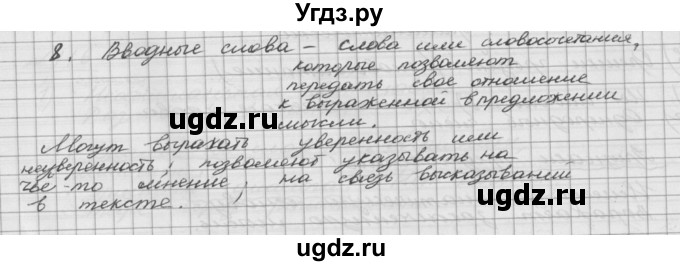 Угдз.ру
8. Вводные слова – слова или словосочетания,
которые позволяют
передать свое отношение
к выраженной в предложении
мысли.
uḡdz.ru
Могут выражать уверенность или
неуверенность, позволяют указывать на
чье-то мнение, на связь высказываний
в тексте.
ugdz.ru
ugdz.ru